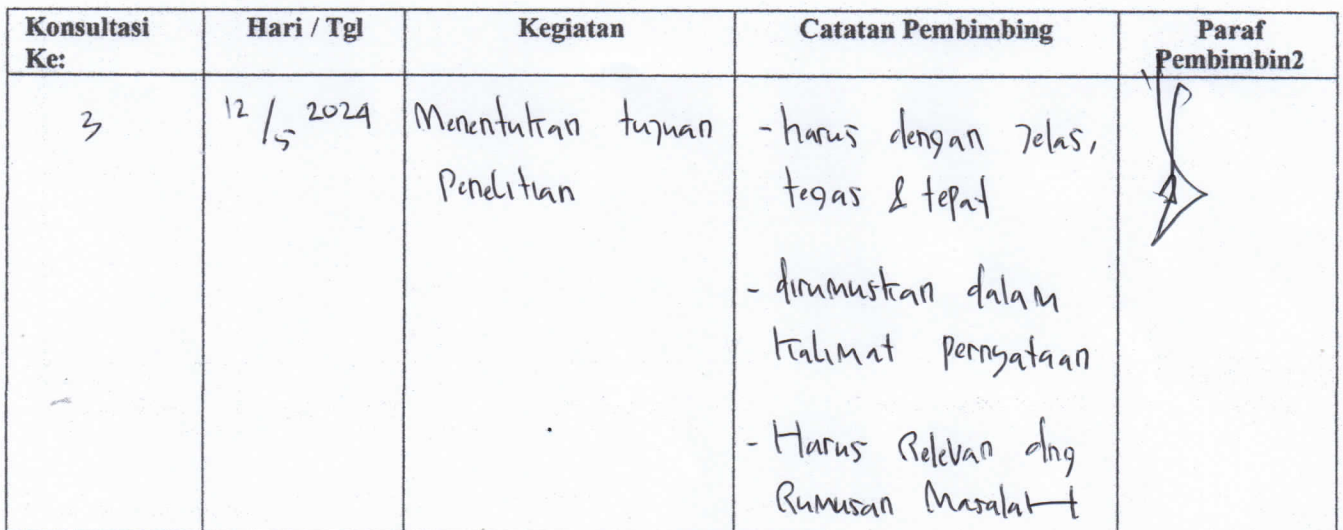 Konsultasi Ke:
Hari / Tgl
Kegiatan
Catatan Pembimbing
Paraf Pembimbin2
3
12/5 2024
Menentukan tujuan
Penelitian
- harus dengan Jelas,
tegas & tepat
- dirumuskan dalam
kalimat pernyataan
- Harus Relevan dng
Rumusan Masalah